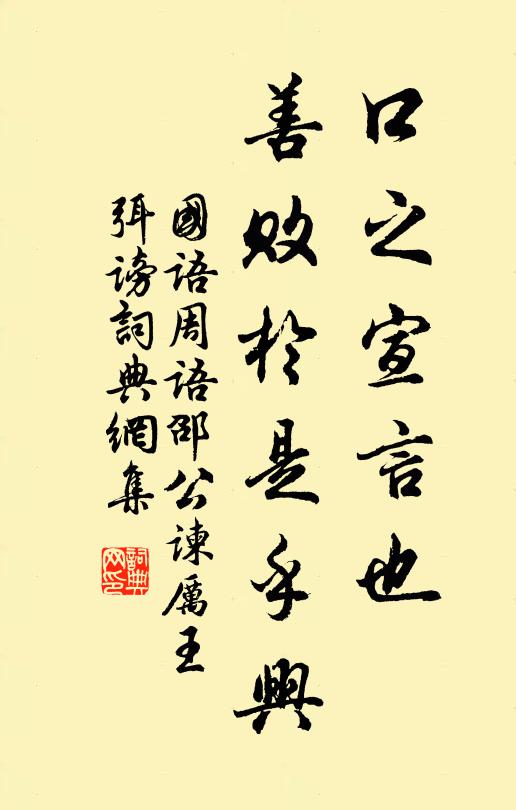 口之宣言也
善敗於是乎興
國語周語邵公諫厲王
弭謗詞典網集
詞典
网印